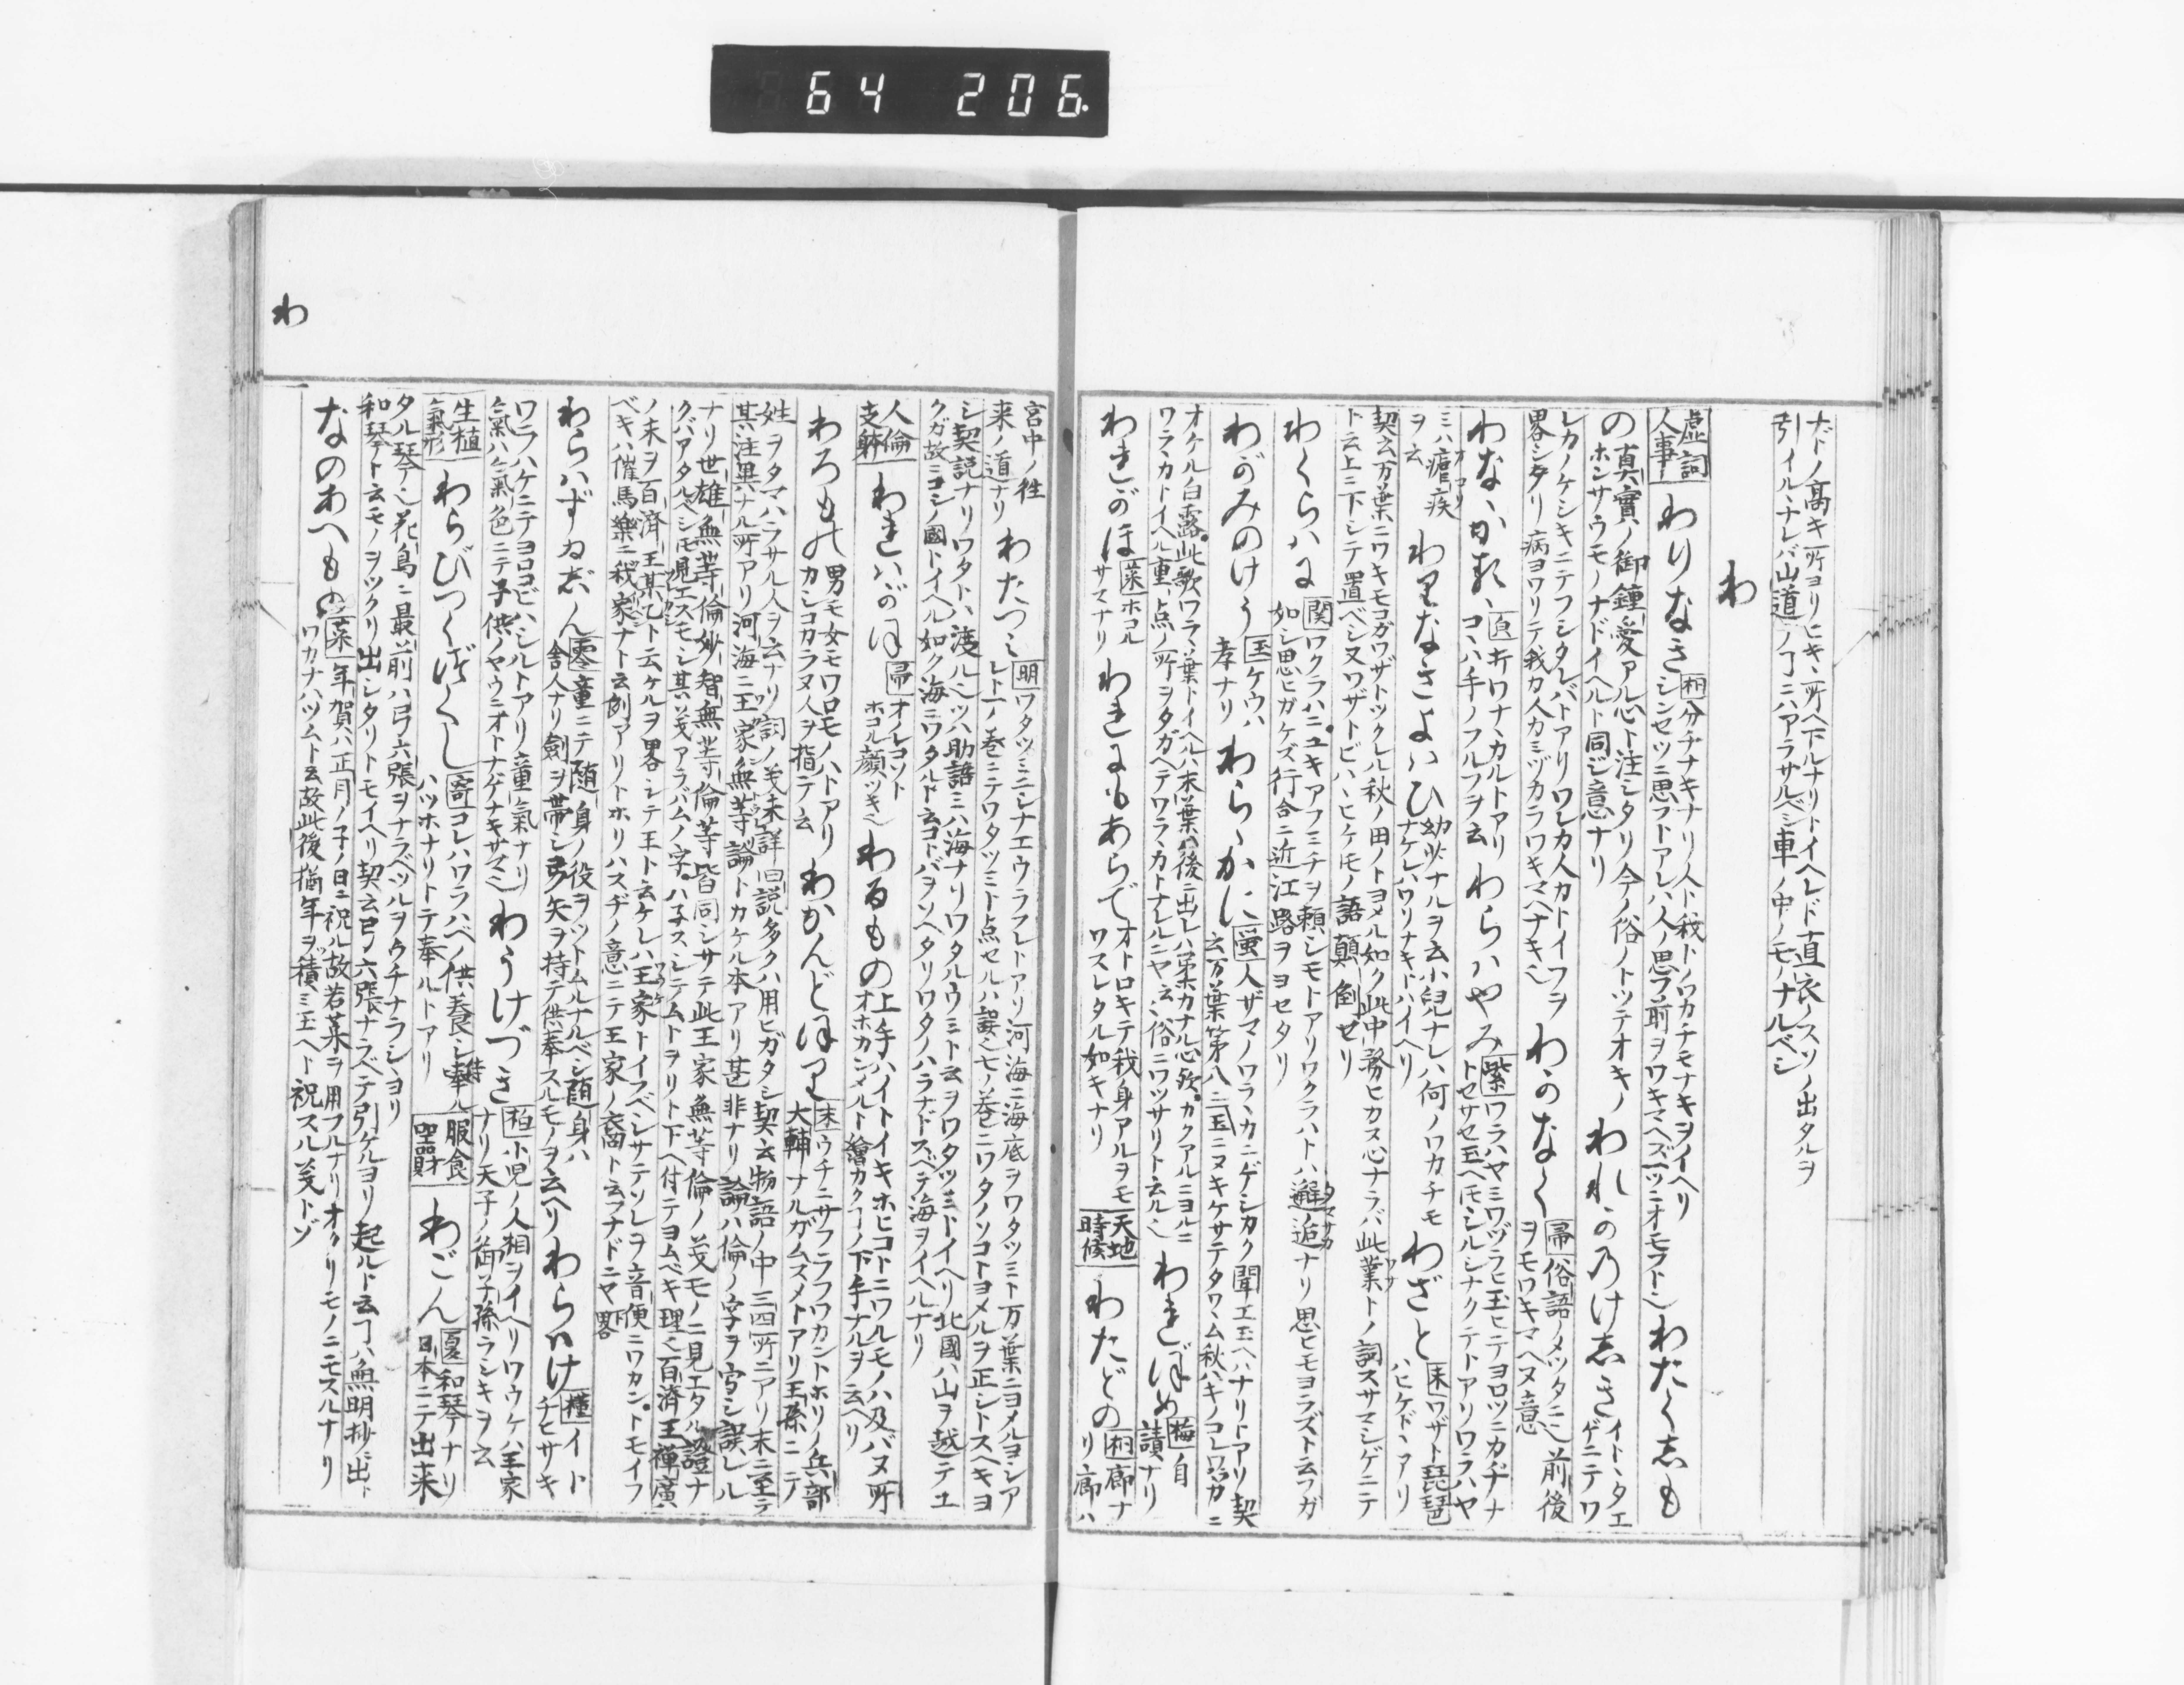 64 206
ナドノ高キ所ヨリヒキヽ所ヘ下ルナリトイヘレド直衣ノスソノ出タルヲ
引イルヽナレバ山道ノ丁ニハアラサルベシ車ノ中ノモノナルベシ
わ
虚詞
人事
わりなき
分チナキナリ人ト我トノワカチモナキヲイヘリ
シンセツニ思フトアレハ人ノ思フ前ヲワキマヘズ一ツニオモフト也
わたくしも
の
真實ノ御鍾愛アル心ト注シタリ今ノ俗ノトツテオキノ
ホンサウモノナドイヘルト同ジ意ナリ
われかのけしき
イトヽタエ
ゲニテワ
レカノケシキニテフシタレバトアリワレカ人カトイフヲ
畧シタリ病ヨワリテ我カ人カミヅカラワキマヘナキ也
わかなく
帚俗語ノメツタニ也前後
ヲモワキマヘヌ意
わなゝかるゝ
折ワナヽカルトアリ
コヽハ手ノフルフヲ云
わらハやみ
紫ワラハヤミワヅラヒ玉ヒテヨロツニカヂナ
トセサセ玉ヘ𪜈シルシナクテトアリワラハヤ
ミハ瘧疾
ヲ云
わりなきよハひ
幼少ナルヲ云小兒ナレハ何ノワカチモ
ナケレハワリナキトハイヘリ
わざと
末ワザト琵琶
ハヒケドヽアリ
契云万葉ニワキモコガワザトツクレル秋ノ田ノトヨメル如ク此中務ヒカス心ナラバ此業トノ詞スサマシゲニテ
ト云上ニ下シテ置ベシ又ワザトビハヽヒケ𪜈ノ語顛倒セリ
わくらハに
関ワクラハニユキアフミチヲ頼シモトアリワクラハトハ邂逅ナリ思ヒモヨラズト云フガ
如シ思ヒガケズ行合ニ近江路ヲヨセタリ
わがみのけう
玉ケウハ
孝ナリ
わらゝかに
蛍人ザマノワラヽカニゲシカク聞エ玉ヘハナリトアリ契
云万葉第八ニ玉ニヌキケサテタワム秋ハキノコレワヽガニ
オケル白露此歌ワラヽ葉トイヘルハ末葉ハ後ニ出レハ
ワラヽカトイヘル重点ノ所ヲタガヘテワラヽカトナレルニヤ云々俗ニワツサリト云ル也
われぼめ
梅自
讃ナリ
われがほ
葵ホコル
サマナリ
われにもあらで
オトロキテ我身アルヲモ
ワスレタル如キナリ
天地
時候
わたどの
桐廊ナ
リ廊ハ
宮中ノ往
来ノ道ナリ
わたつミ
明ワタツミニシナエウラフレトアリ河海ニ海底ヲワタツミト万葉ニヨメルヨシア
レト一ノ巻ニテワタツミト点セルハ誤也モノ巻ニワタノソコトヨメルヲ正シトスヘキヨ
シ契説ナリワタトハ渡ル也ツハ助語ミハ海ナリワタルウミト云ヲワタツミトイヘリ北國ハ山ヲ越テユ
クガ故ニコシノ國トイヘル如ク海ニワタルト云コトバヲソヘタリワタノハラナドスベテ海ヲイヘルナリ
人倫
支躰
われハがほ
帚オレコソト
ホコル顔ツキ也
わるもの
上手ハイトイキホヒコトニワルモノハ及バヌ所
オホカンメルト繪カクコノ下手ナルヲ云ヘリ
わろもの
男モ女モワロモノハトアリ
カシコカラヌ人ヲ指テ云
わかんどほり
末ウチニサフラフワカントホリノ兵部
大輔ナルガムスメトアリ王孫ニテ
姓ヲタマハラサル人ヲ云ナリ詞ノ義未詳旧説多クハ用ヒガタシ契云物語ノ中三四所ニアリ末ニ至テ
其注異ナル所アリ河海ニ王家無等論トカケル本アリ甚非ナリ論ハ倫ノ字ヲ写シ誤レル
ナリ世雄無等倫妙智無等倫等皆同シサテ此王家無等倫ノ義モノニ見エタル證ナ
クバアタルベシ𪜈見エスモシ其義アラバムノ字ハネスシテムトヲリト下ヘ付テヨムベキ理也百済王禅廣
ノ末ヲ百済王某乙ト云ケルヲ畧シテ王ト云ケレハ王家トイフベシサテソレヲ音便ニワカントモイフ
ベキハ催馬樂ニ我家ナト云例アリトホリハスヂノ意ニテ王家ノ裔ト云フナドニヤ下畧
わらハずゐじん
零童ニテ随身ノ役ヲツトムルナルベシ随身ハ
舎人ナリ劔ヲ帯シ弓矢ヲ持テ供奉スルモノヲ云ヘリ
わらハけ
権イト
チヒサキ
ワラハケニテヨロコビハシルトアリ童氣ナリ
氣ハ氣色ニテ子供ノヤウニオトナゲナキサマ也
わうけづき
柏小児ノ人相ヲイヘリワウケハ王家
ナリ天子ノ御子孫ラシキヲ云
生植
氣形
わらびつくづくし
寄コレハワラハベノ供養シ侍
ハツホナリトテ奉ルトアリ
服食
器財
わごん
夏和琴ナリ
日本ニテ出来
タル琴也花鳥ニ最前ハ弓六張ヲナラベツルヲウチナラシヨリ
和琴ト云モノヲツクリ出シタリトモイヘリ契云弓ノ六張ナラベテ引ケルヨリ起ルト云丁ハ無明抄ニ出ト
なのあへもの
菜年賀ハ正月ノ子ノ日ニ祝ル故若菜ヲ用フルナリオクリモノニモスルナリ
ワカナハツムト云故此後猶年ヲ積ミ玉ヘト祝スル義トゾ
わ